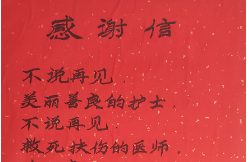 感谢信
不说再见
美丽善良的护士，
不说再见
救死扶伤的医师，